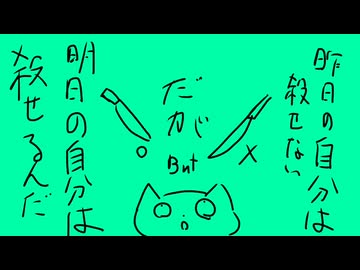 昨日の自分は
殺せない
だが
But
明日の自分は
殺せるんだ